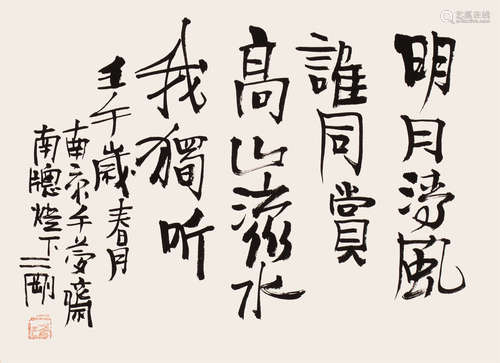 明月清風
誰同賞
高山流水
我獨听
壬午歲春月
南京千夢齋
南牕燈下二剛